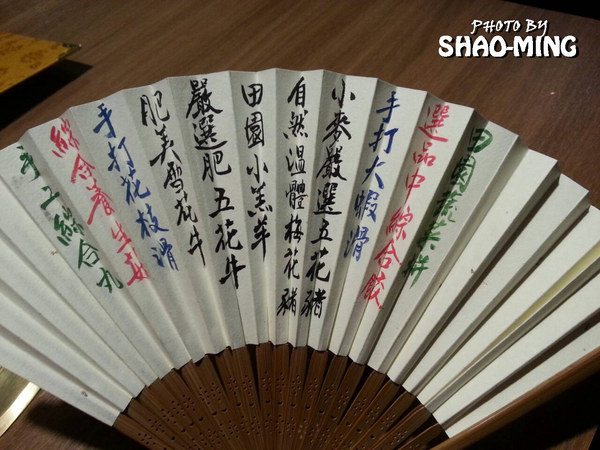 PHOTO BY
SHAO-MING
田園蔬菜拼
選品中綜合餃
手打大蝦滑
小麥嚴選五花豬
自然溫體梅花豬
田園小羔羊
嚴選肥五花牛
肥美雪花牛
手打花枝滑
綜合養生菇
手工綜合丸